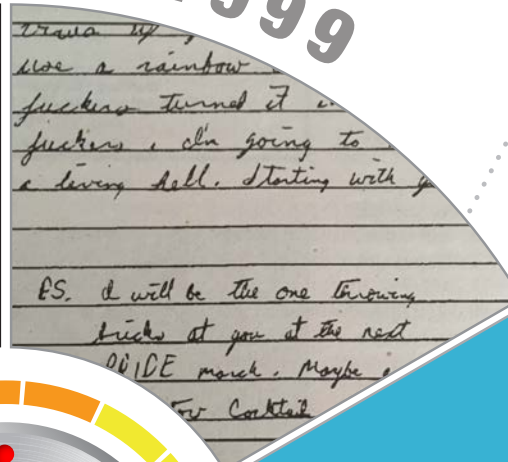 999
use a rainbow
fuckers turned it
fuckers, I'm going to
a living hell. Starting with
PS. I will be the one throwing
bricks at you at the next
PRIDE march. Maybe
Cocktail